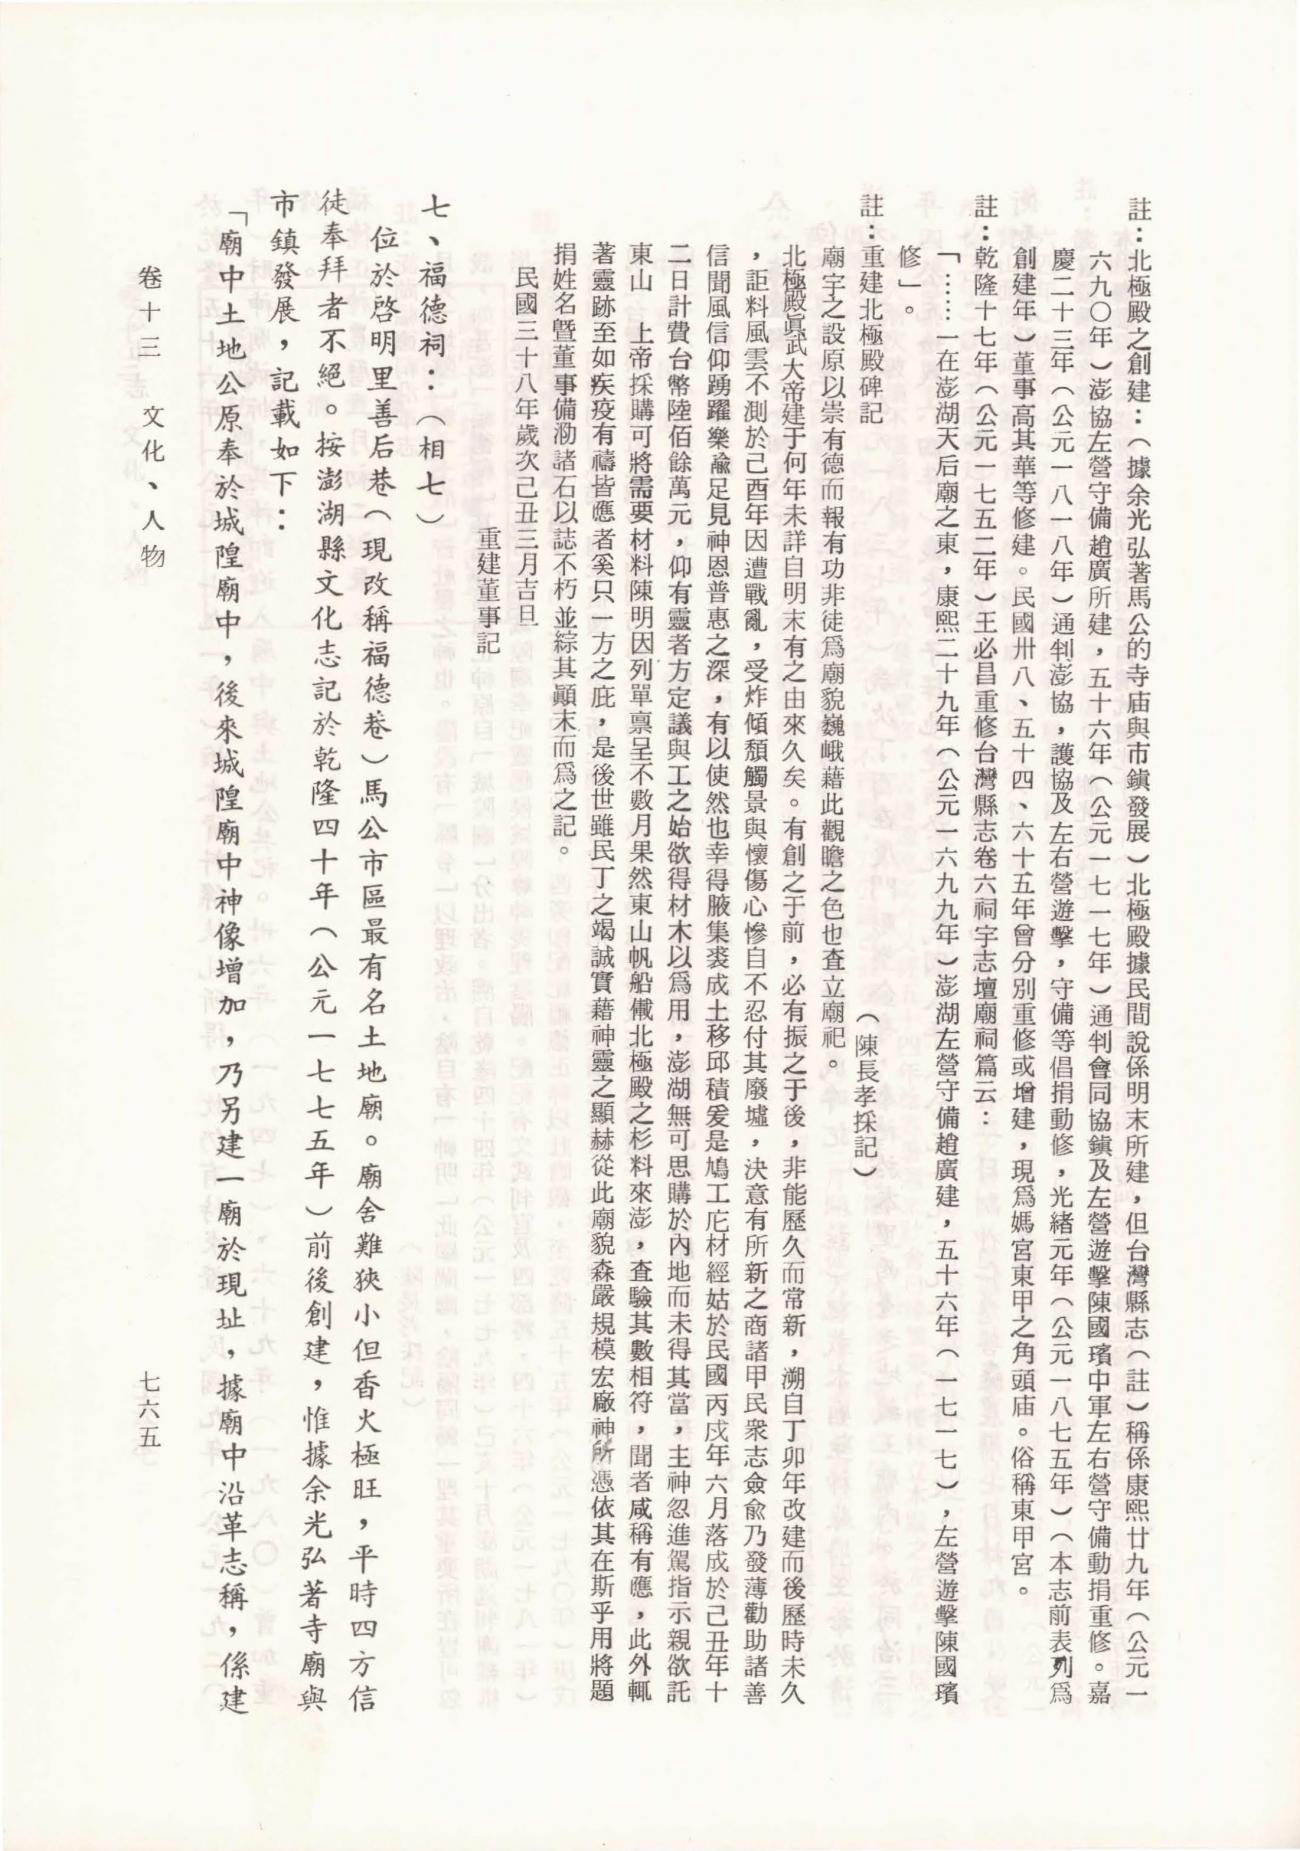 註：北極殿之創建：（據余光弘著馬公的寺庙與市鎮發展）北極殿據民間說係明末所建，但台灣縣志（註）稱係康熙廿九年（公元一
六九〇年）澎協左營守備趙廣所建，五十六年（公元一七一七年）通判會同協鎮及左營遊擊陳國璸中軍左右營守備勸捐重修。嘉
慶二十三年（公元一八一八年）通判澎協，護協及左右營遊擊，守備等倡捐動修，光緒元年（公元一八七五年）（本志前表列爲
創建年）董事高其華等修建。民國卅八、五十四、六十五年曾分別重修或增建，現爲媽宮東甲之角頭庙。俗稱東甲宮。
註：乾隆十七年（公元一七五二年）王必昌重修台灣縣志卷六祠宇志壇廟祠篇云：
「……在澎湖天后廟之東，康熙二十九年（公元一六九九年）澎湖左營守備趙廣建，五十六年（一七一七），左營遊擊陳國璸
修」。
註：重建北極殿碑記　　　　　　　　（陳長孝採記）
廟宇之設原以崇有德而報有功非徒爲廟貌巍峨藉此觀瞻之色也查立廟祀。
北極殿眞武大帝建于何年未詳自明末有之由來久矣。有創之于前，必有振之于後，非能歷久而常新，溯自丁卯年改建而後歷時未久
，詎料風雲不測於己酉年因遭戰亂，受炸傾頹觸景與懷傷心慘自不忍付其廢墟，決意有所新之商諸甲民衆志僉兪乃發薄勸助諸善
信聞風信仰踴躍樂龥足見神恩普惠之深，有以使然也幸得腋集裘成土移邱積爰是鳩工庀材經姑於民國丙戍年六月落成於己丑年十
二日計費台幣陸佰餘萬元，仰有靈者方定議與工之始欲得材木以爲用，澎湖無可思購於內地而未得其當，主神忽進駕指示親欲託
東山　上帝採購可將需要材料陳明因列單稟呈不數月果然東山帆船儎北極殿之杉料來澎，査驗其數相符，聞者咸稱有應，此外輒
著靈跡至如疾疫有禱皆應者奚只一方之庇，是後世雖民丁之竭誠實藉神靈之顯赫從此廟貌森嚴規模宏廠神所憑依其在斯乎用將題
捐姓名曁董事備泐諸石以誌不朽並綜其顚末而爲之記。
民國三十八年歲次己丑三月吉旦
重建董事記
七、福德祠：（相七）
位於啓明里善后巷（現改稱福德巷）馬公市區最有名土地廟。廟舍難狹小但香火極旺，平時四方信
徒奉拜者不絕。按澎湖縣文化志記於乾隆四十年（公元一七七五年）前後創建，惟據余光弘著寺廟與
市鎮發展，記載如下：
「廟中土地公原奉於城隍廟中，後來城隍廟中神像增加，乃另建一廟於現址，據廟中沿革志稱，係建
卷十三　文化、人物　　七六五